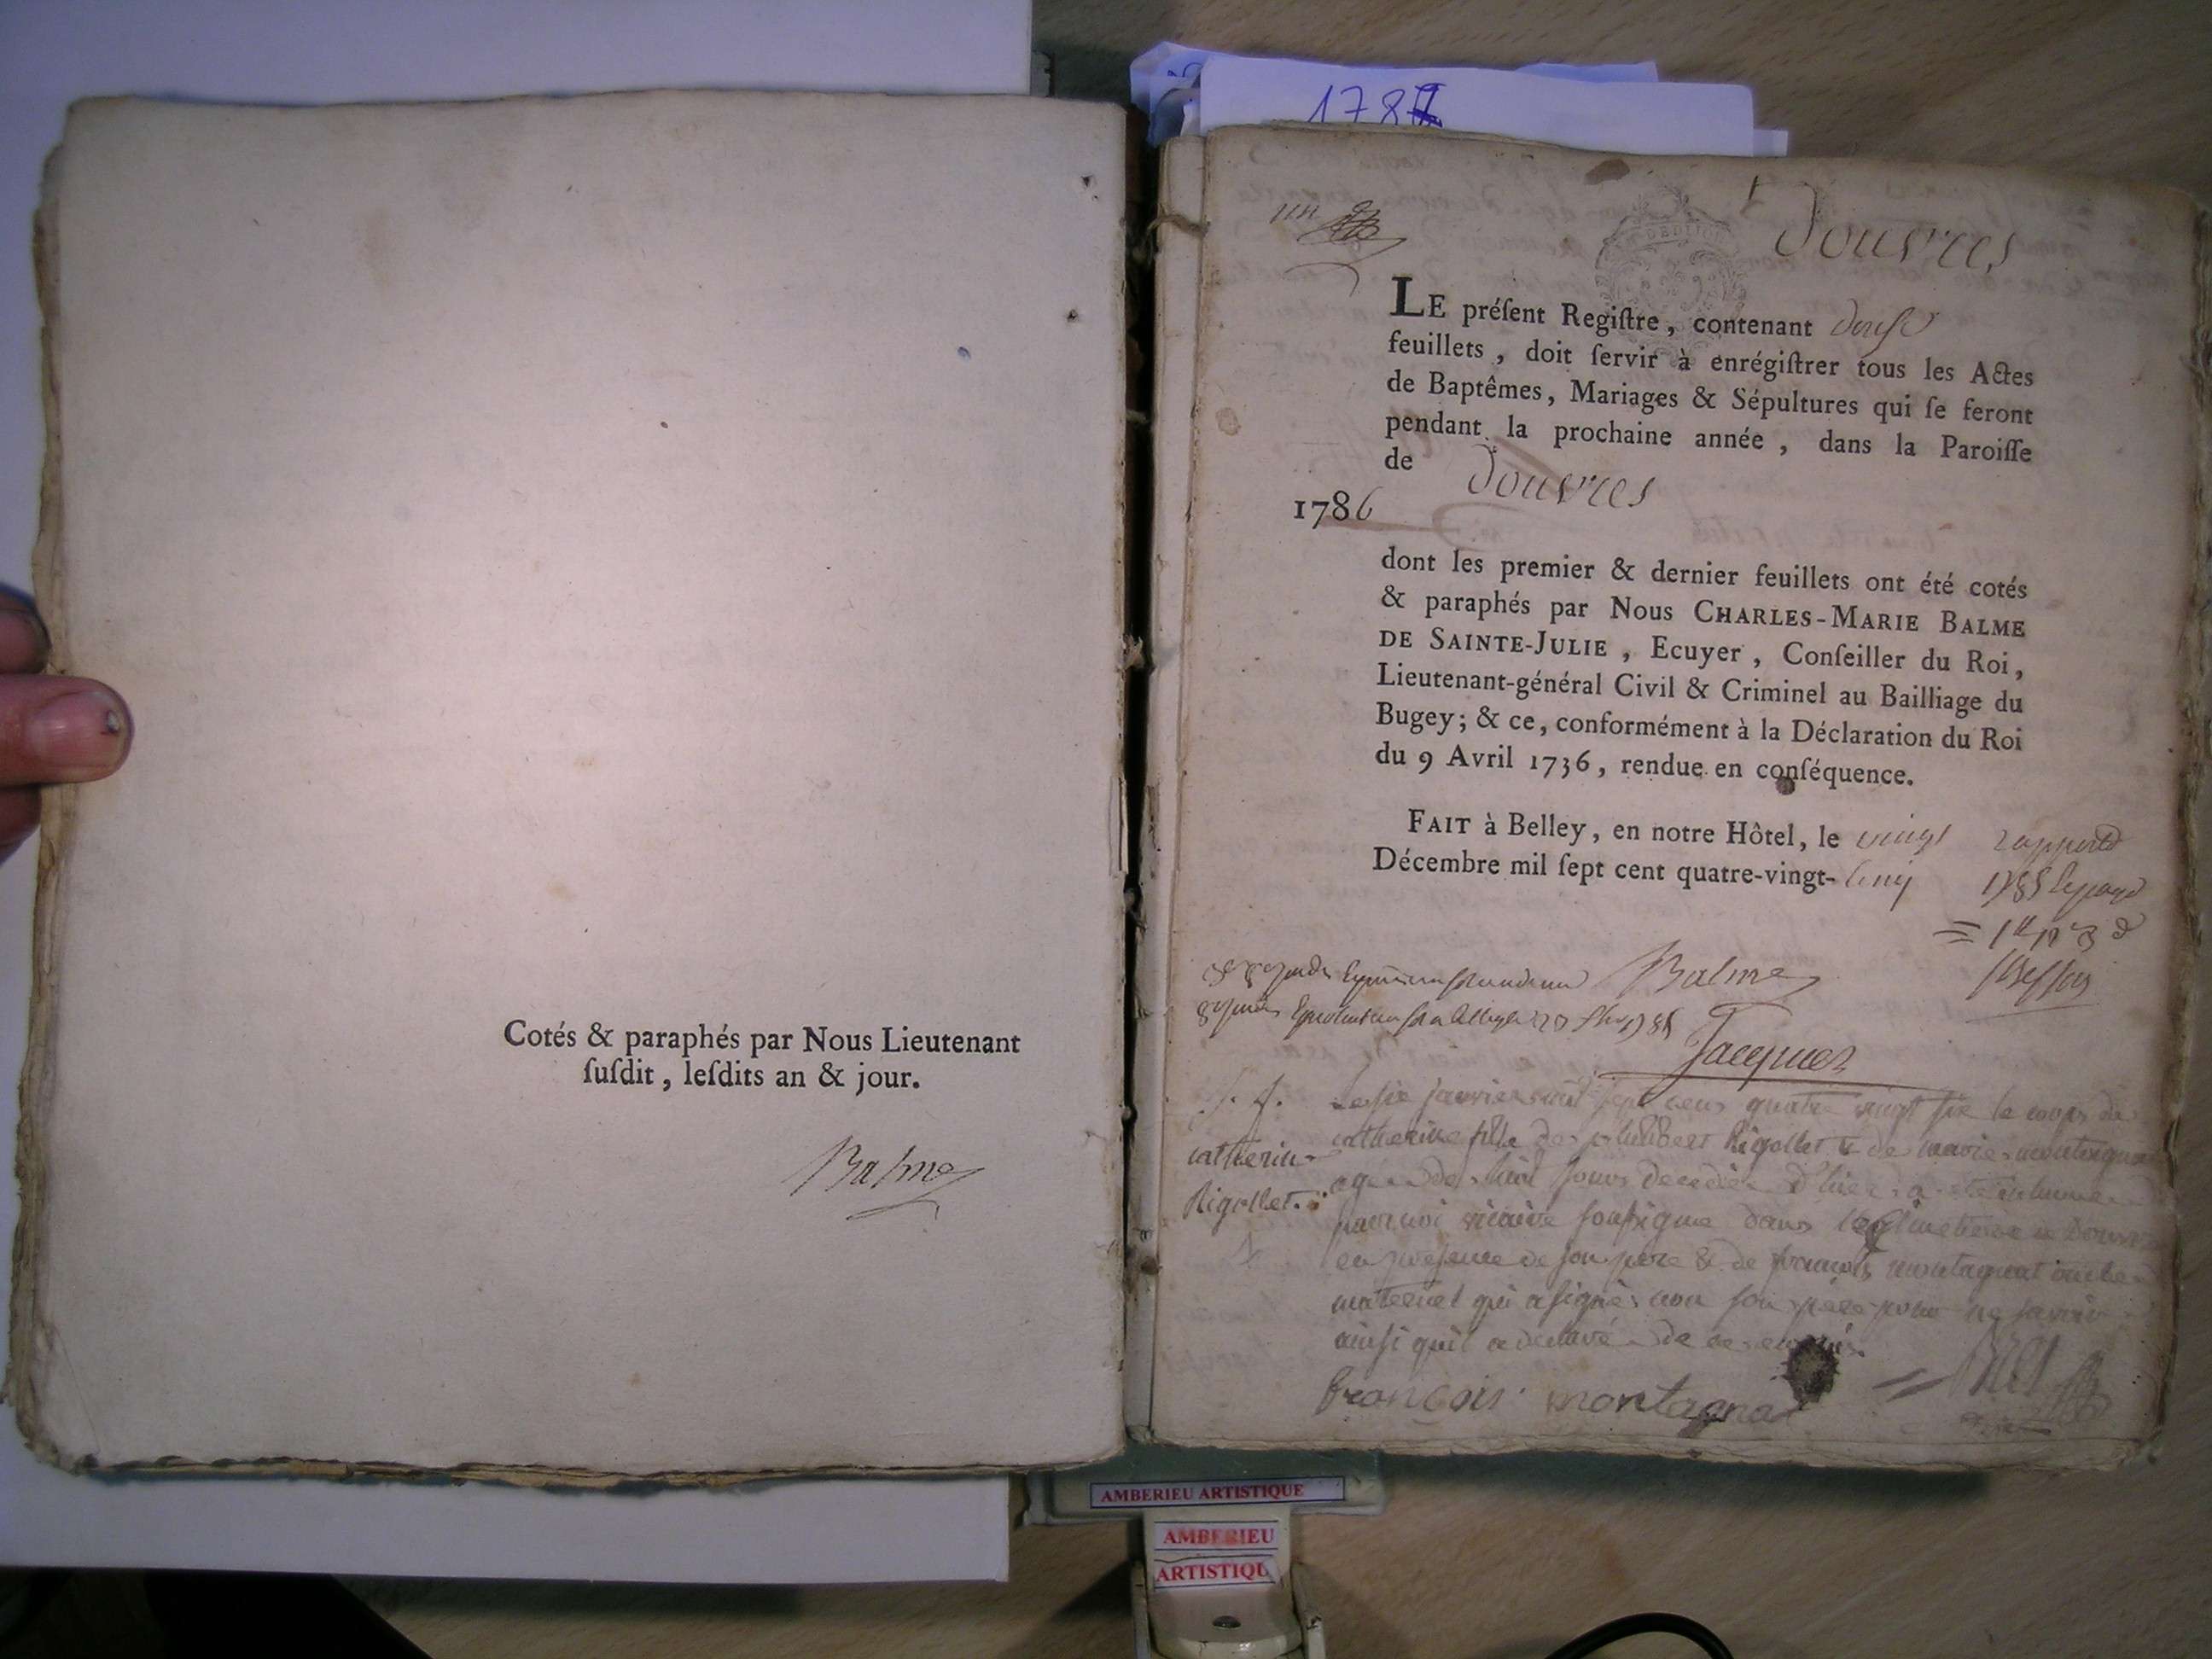 Cotés & paraphés par Nous Lieutenant
ſuſdit, leſdits an & jour.
Balme
178
Douvres
LE préſent Regiſtre, contenant douſe
feuillets, doit ſervir à enrégiſtrer tous les Actes
de Baptêmes, Mariages & Sépultures qui ſe feront
pendant la prochaine année, dans la Paroiſſe
de Douvres
1786
dont les premier & dernier feuillets ont été cotés
& paraphés par Nous CHARLES-MARIE BALME
DE SAINTE-JULIE, Ecuyer, Conſeiller du Roi,
Lieutenant-général Civil & Criminel au Bailliage du
Bugey; & ce, conformément à la Déclaration du Roi
du 9 Avril 1736, rendue en conſéquence.
FAIT à Belley, en notre Hôtel, le vingt
Décembre mil ſept cent quatre-vingt-cinq
Balme
Jacques
Le six janvier mil sept cens quatre vingt six le corps de
catherine fille de philibert Rigollet & de marie montagnat
agée de huit jours decedée d'hier a été inhumé
par moi vicaire soussigné dans le cimetiere de Douvres
en presence de son pere & de françois montagnat oncle
maternel qui a signé non son pere pour ne savoir
ainsi qu'il a déclaré de ce enquis.
catherine
Rigollet.
françois montagnat
AMBERIEU ARTISTIQUE
AMBERIEU
ARTISTIQU